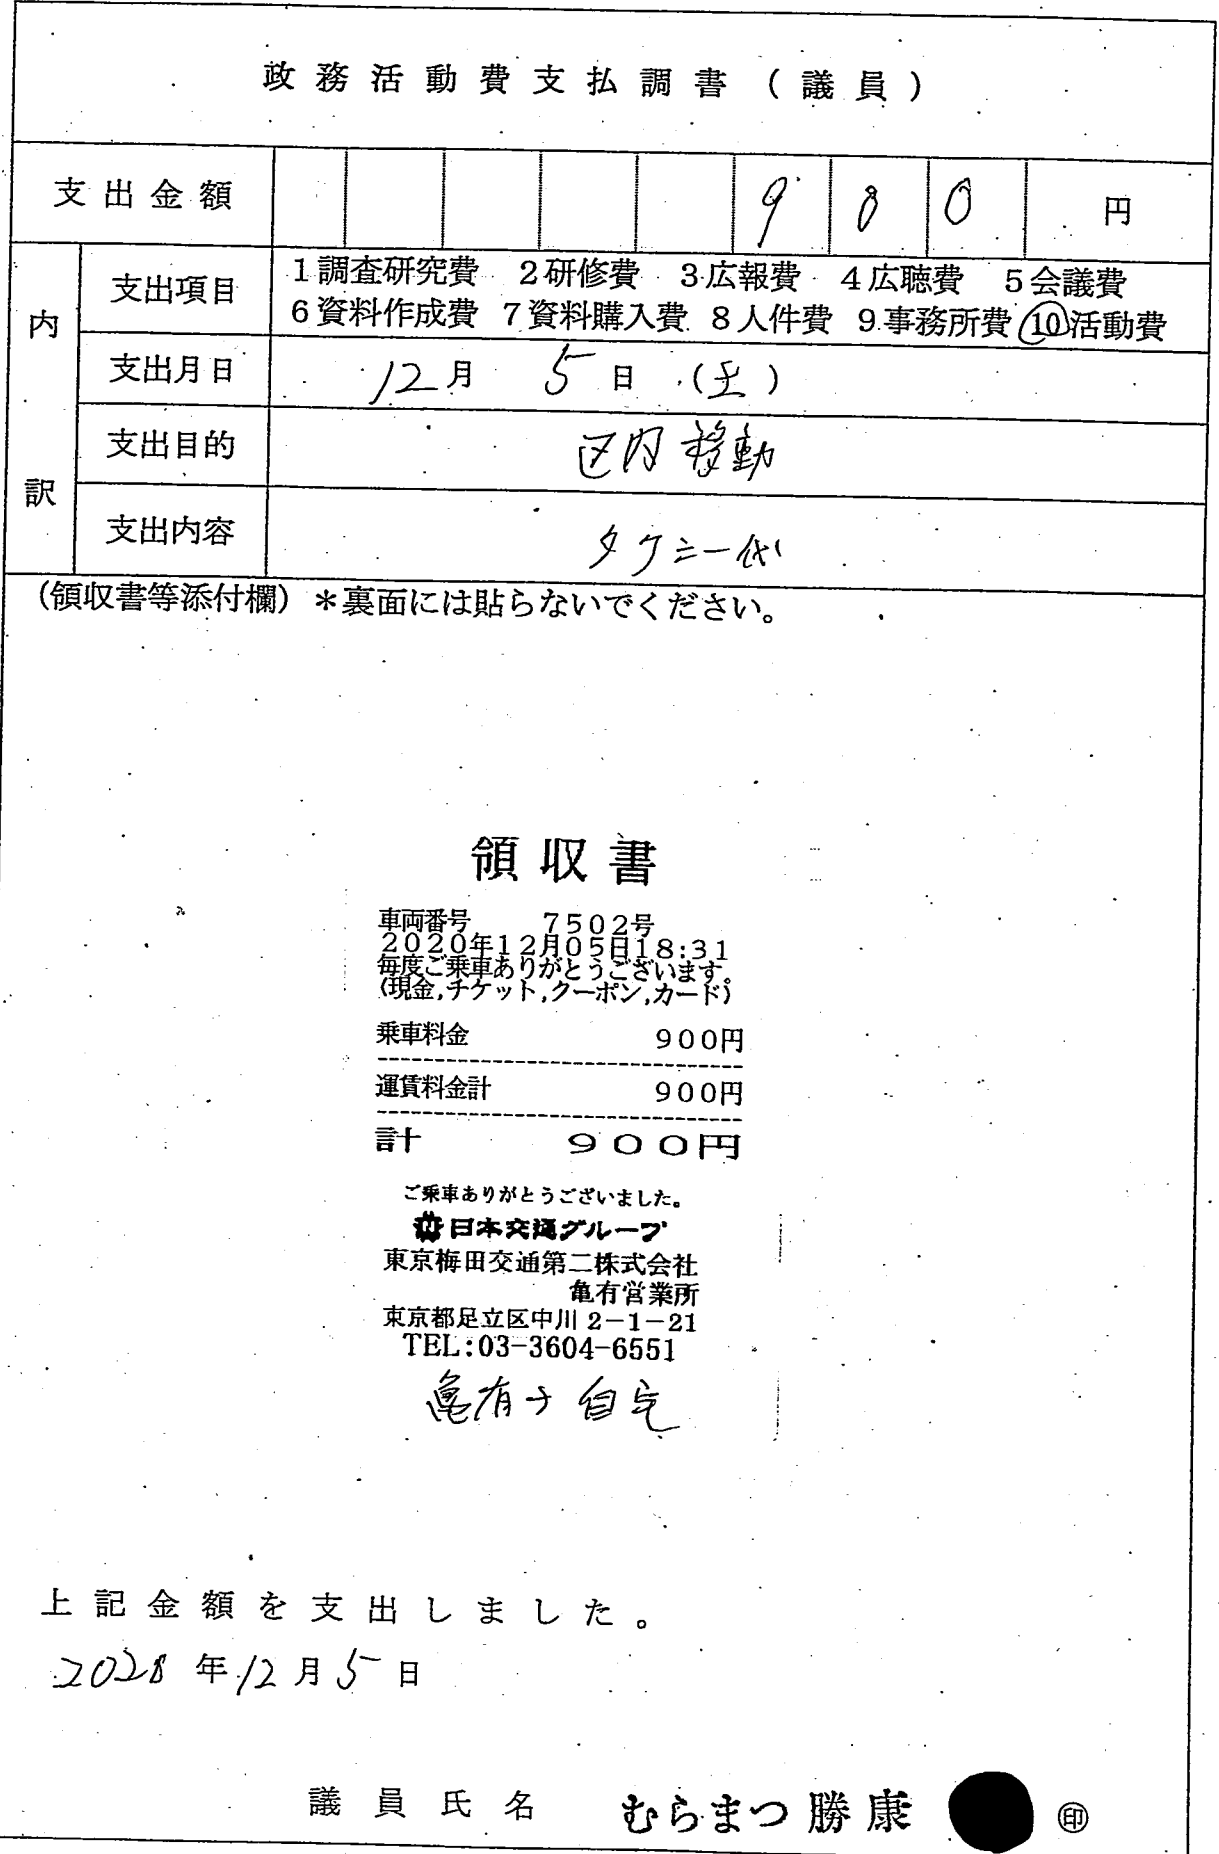 政務活動費支払調書（議員）
支出金額 900 円
内訳
支出項目 1調査研究費 2研修費 3広報費 4広聴費 5会議費
6資料作成費 7資料購入費 8人件費 9事務所費 ⑩活動費
支出月日 12月 5日 (土)
支出目的 区内移動
支出内容 タクシー代
（領収書等添付欄）＊裏面には貼らないでください。
領収書
車両番号 7502号
2020年12月05日18:31
毎度ご乗車ありがとうございます。
(現金,チケット,クーポン,カード)
乗車料金 900円
運賃料金計 900円
計 900円
ご乗車ありがとうございました。
日本交通グループ
東京梅田交通第二株式会社
亀有営業所
東京都足立区中川2-1-21
TEL:03-3604-6551
亀有→自宅
上記金額を支出しました。
2020年12月5日
議員氏名 むらまつ勝康 ㊞